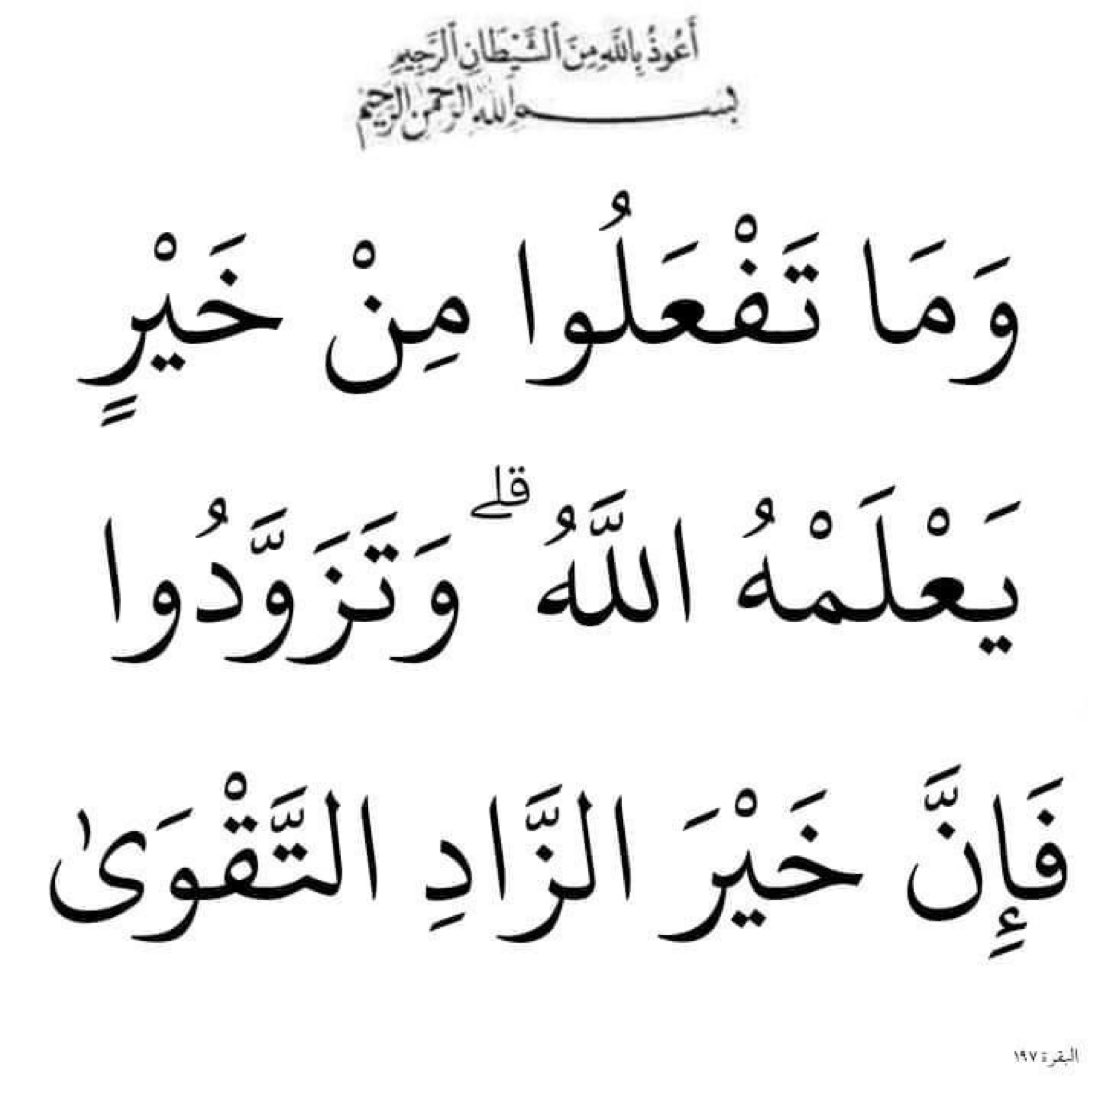 أَعُوذُ بِاللَّهِ مِنَ ٱلشَّيْطَانِ ٱلرَّجِيمِ
بسم الله الرحمن الرحيم
وَمَا تَفْعَلُوا مِنْ خَيْرٍ
يَعْلَمْهُ اللَّهُ ۗ وَتَزَوَّدُوا
فَإِنَّ خَيْرَ الزَّادِ التَّقْوَىٰ
البقرة ١٩٧